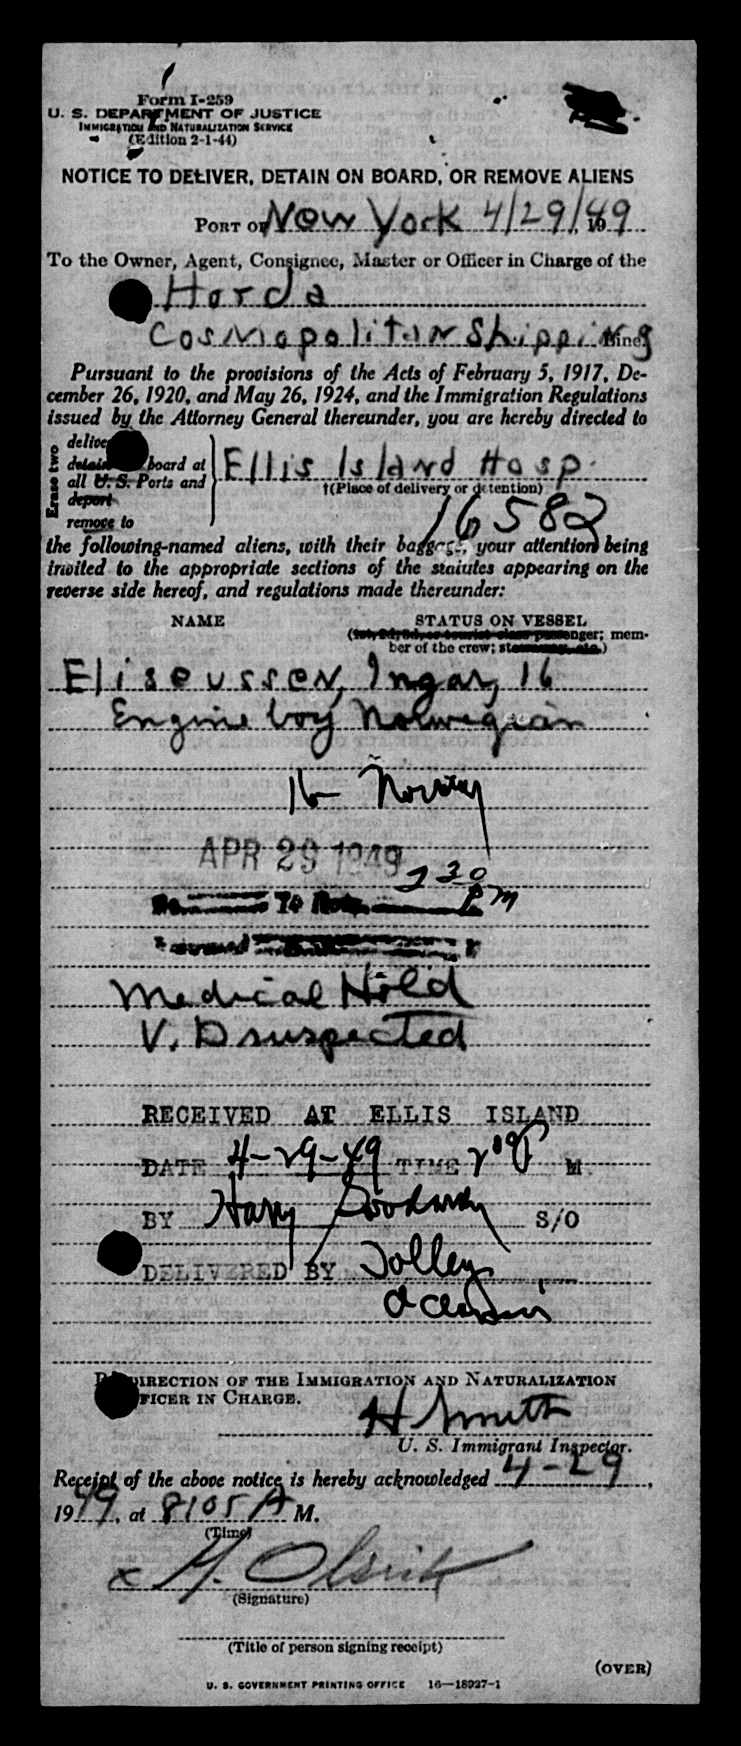 Form I-259
U. S. DEPARTMENT OF JUSTICE
IMMIGRATION AND NATURALIZATION SERVICE
(Edition 2-1-44)
NOTICE TO DELIVER, DETAIN ON BOARD, OR REMOVE ALIENS
PORT OF New York 4/29/49, 19
To the Owner, Agent, Consignee, Master or Officer in Charge of the
Horda
Cosmopolitan Shipping Line
Pursuant to the provisions of the Acts of February 5, 1917, De-
cember 26, 1920, and May 26, 1924, and the Immigration Regulations
issued by the Attorney General thereunder, you are hereby directed to
Erase two
deliver
detain board at
all U. S. Ports and
deport
remove to
Ellis Island Hosp.
†(Place of delivery or detention)
16582
the following-named aliens, with their baggage, your attention being
invited to the appropriate sections of the statutes appearing on the
reverse side hereof, and regulations made thereunder:
NAME STATUS ON VESSEL
(1st, 2d, 3d, or tourist class passenger; mem-
ber of the crew;
Eliseussen, Ingar, 16
Engine boy Norwegian
16 Norway
APR 29 1949 230
PM
To
Medical Hold
V. D suspected
RECEIVED AT ELLIS ISLAND
DATE 4-29-49 TIME 2 10 P M
BY Harry S/O
DELIVERED BY Jolley
BY DIRECTION OF THE IMMIGRATION AND NATURALIZATION
OFFICER IN CHARGE.
H Smith
U. S. Immigrant Inspector.
Receipt of the above notice is hereby acknowledged 4-29,
1949, at 8105 A M.
(Time)
x
(Signature)
(Title of person signing receipt)
(OVER)
U. S. GOVERNMENT PRINTING OFFICE 16—18927-1